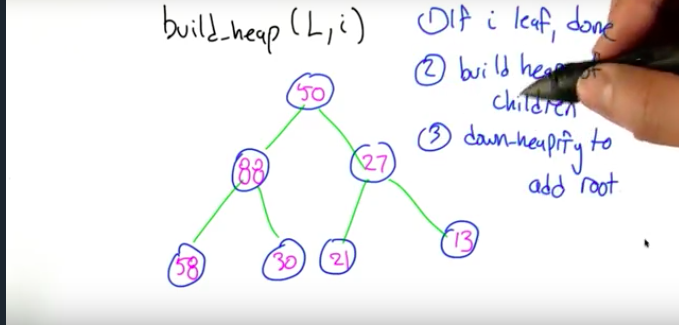 build_heap (L,i)
① If i leaf, done
② build heap of
children
③ down-heapify to
add root
50
88
27
58
30
21
13